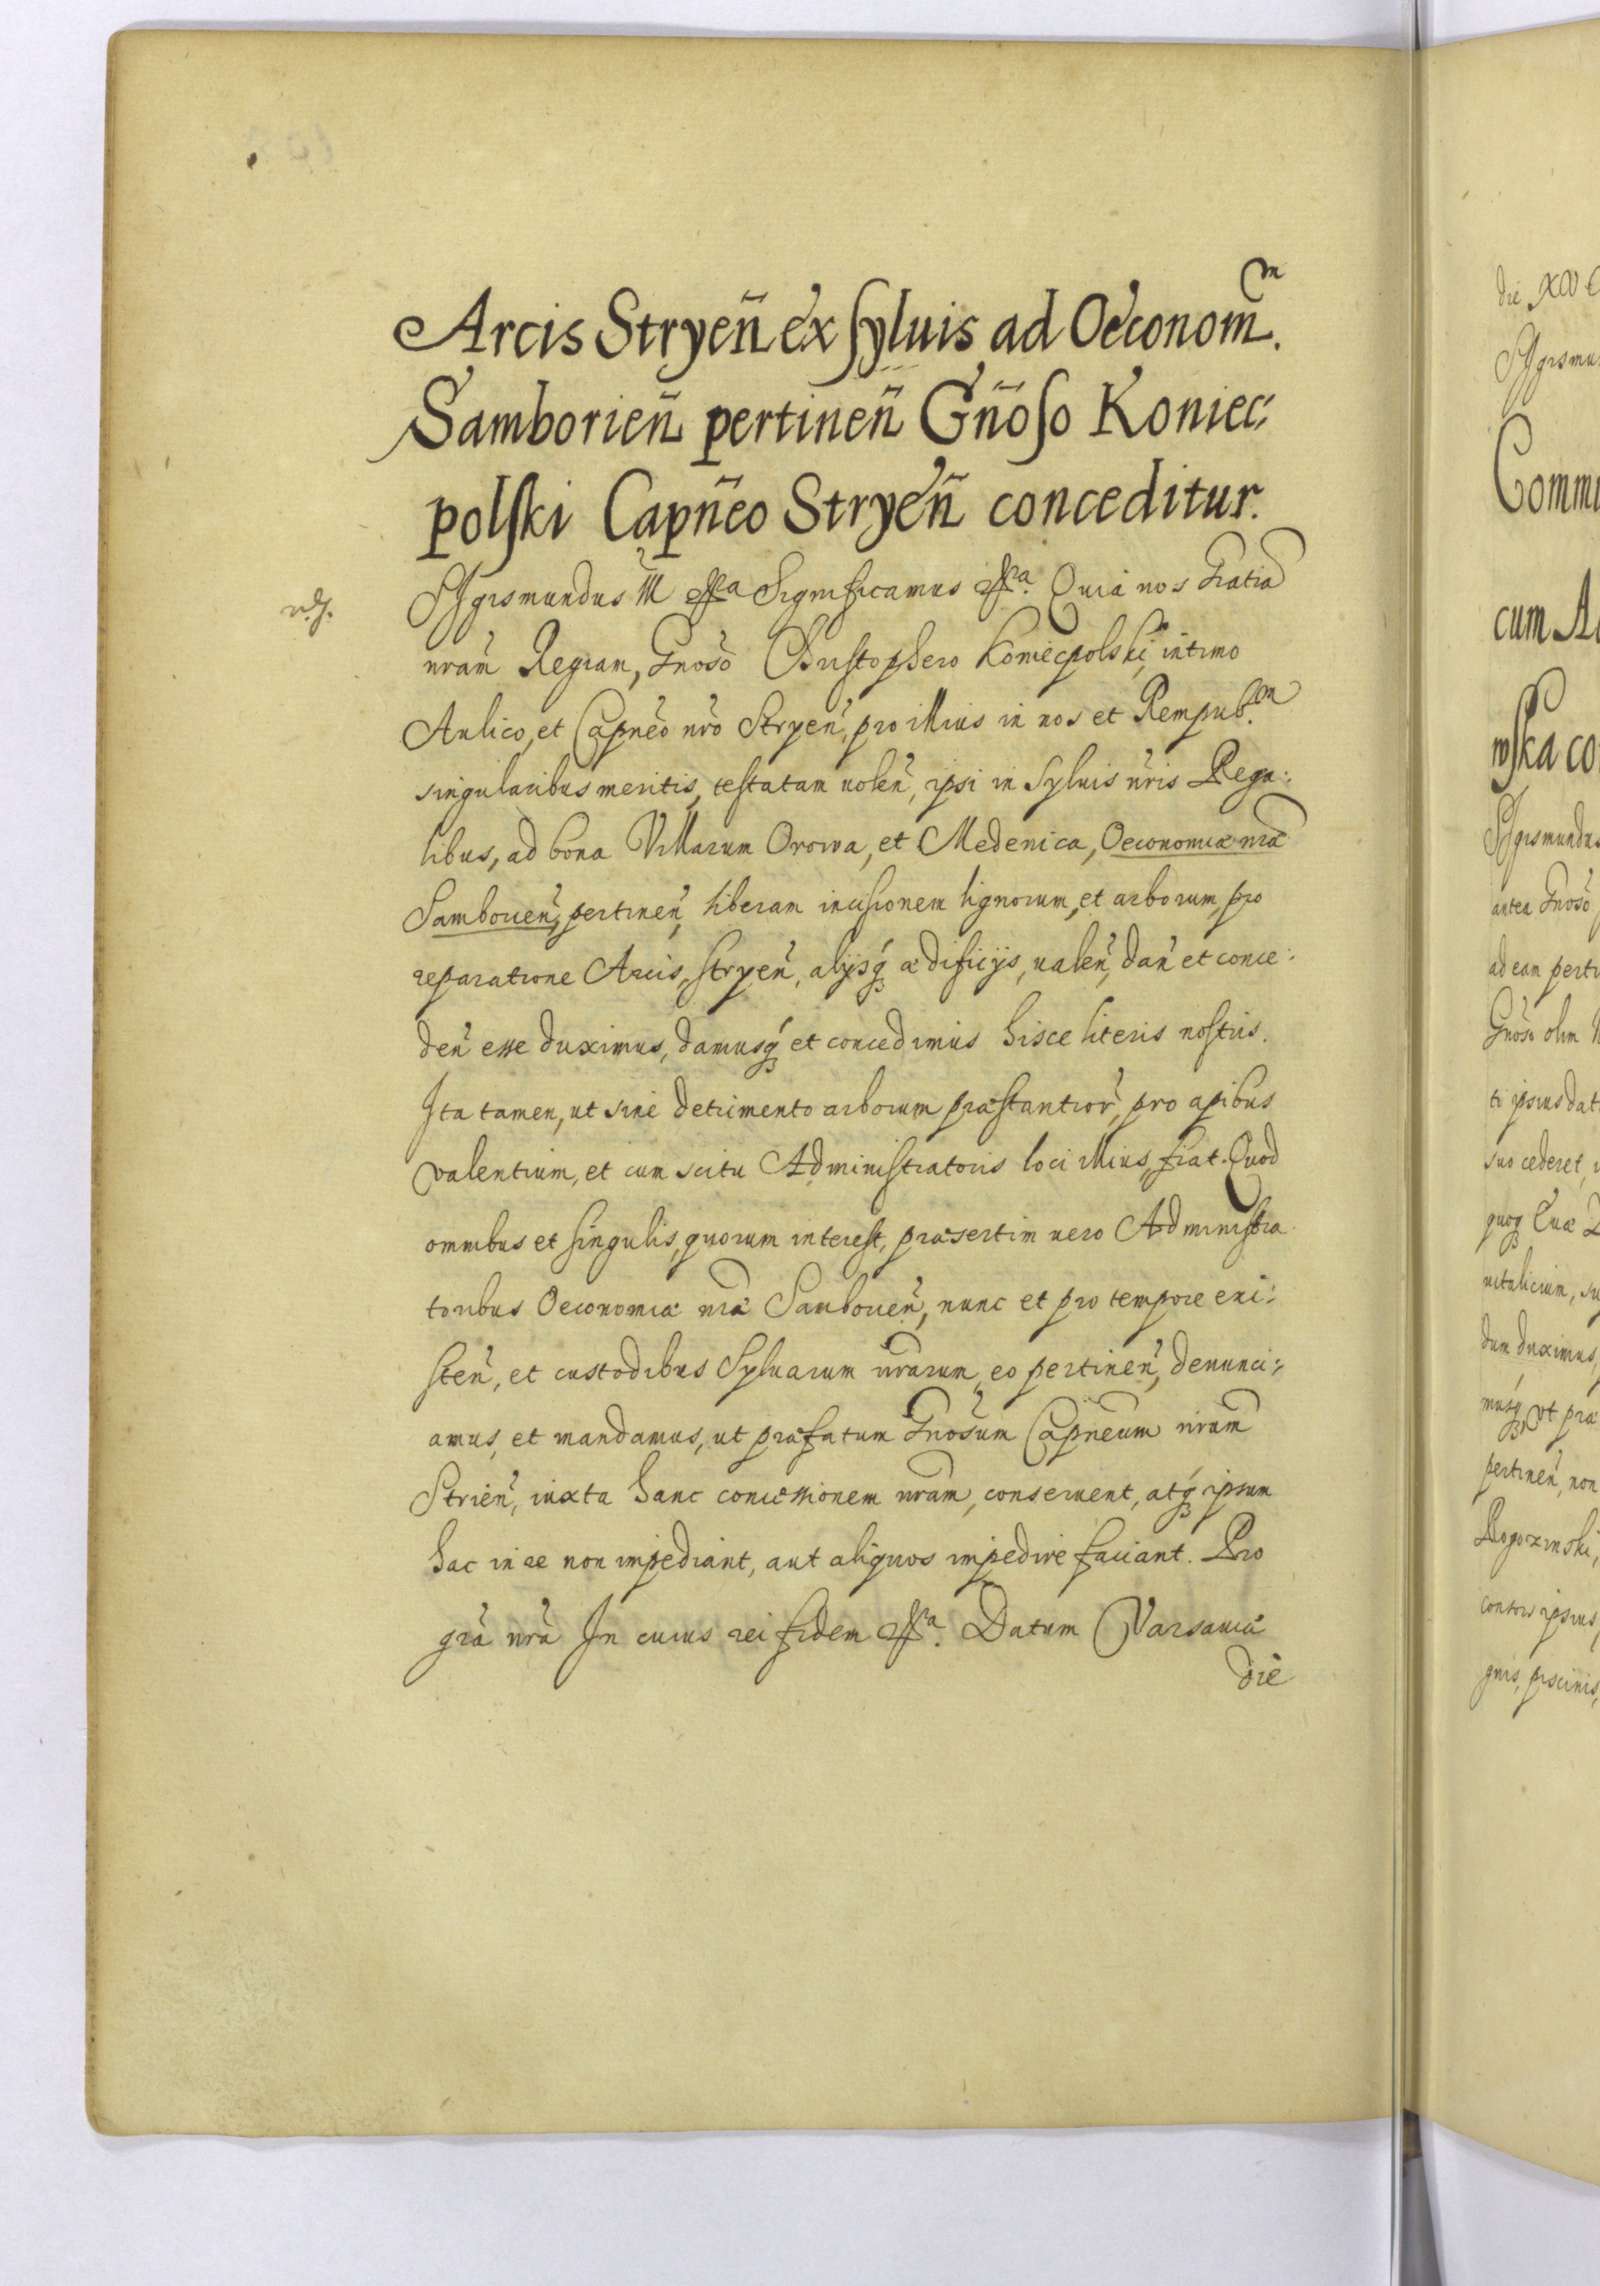 Arcis Stryeñ ex syluis ad Oeconom.m
Samborieñ pertineñ Gñoso Koniec:
polski Capñeo Stryeñ conceditur.
Sigismundus III Significamus Quia nos Gratiã
nrãm Regiam, Gnoso Christophero Koniecpolski, intimo
Aulico, et Capneo nro Stryeñ, pro illius in nos et Rempub.m
singularibus meritis, testatam uoleñ, ipsi in Syluis nris Rega:
libus, ad bona Villarum Orowa, et Medenica, Oeconomiæ nræ
Samborieñ, pertineñ, liberam incisionem lignorum, et arborum, pro
reparatione Arcis, Stryeñ, alijsq ædificijs, ualeñ, dañ et conce:
deñ esse duximus, damusq et concedimus hisce literis nostris.
Ita tamen, ut sine detrimento arborum præstantior, pro apibus
valentium, et cum scitu Administratoris loci illius, fiat. Quod
omnibus et singulis, quorum interest, præsertim uero Administra
toribus Oeconomiæ nræ Samborieñ, nunc et pro tempore exi:
steñ, et custodibus Syluarum nrarum, eo pertineñ, denunci:
amus, et mandamus, ut præfatum Gnosum Capneum nrum
Strieñ, iuxta hanc concessionem nram, conseruent, atq ipsum
hac in re non impediant, aut aliquos impedire faciant. Pro
grã nrã In cuius rei fidem Datum Varsauiæ
die
die XV
Sigismu
Commu
cum A
wska co
Sigismundus
antea Gnoso
ad eam perti
Gnoso olim
ti ipsius dat
suo cederet,
quoq
uitalicium, su
dum duximus,
musq, Vt præ
pertineñ, non
Rogozinski,
contoris ipsius,
gnis, piscinis,